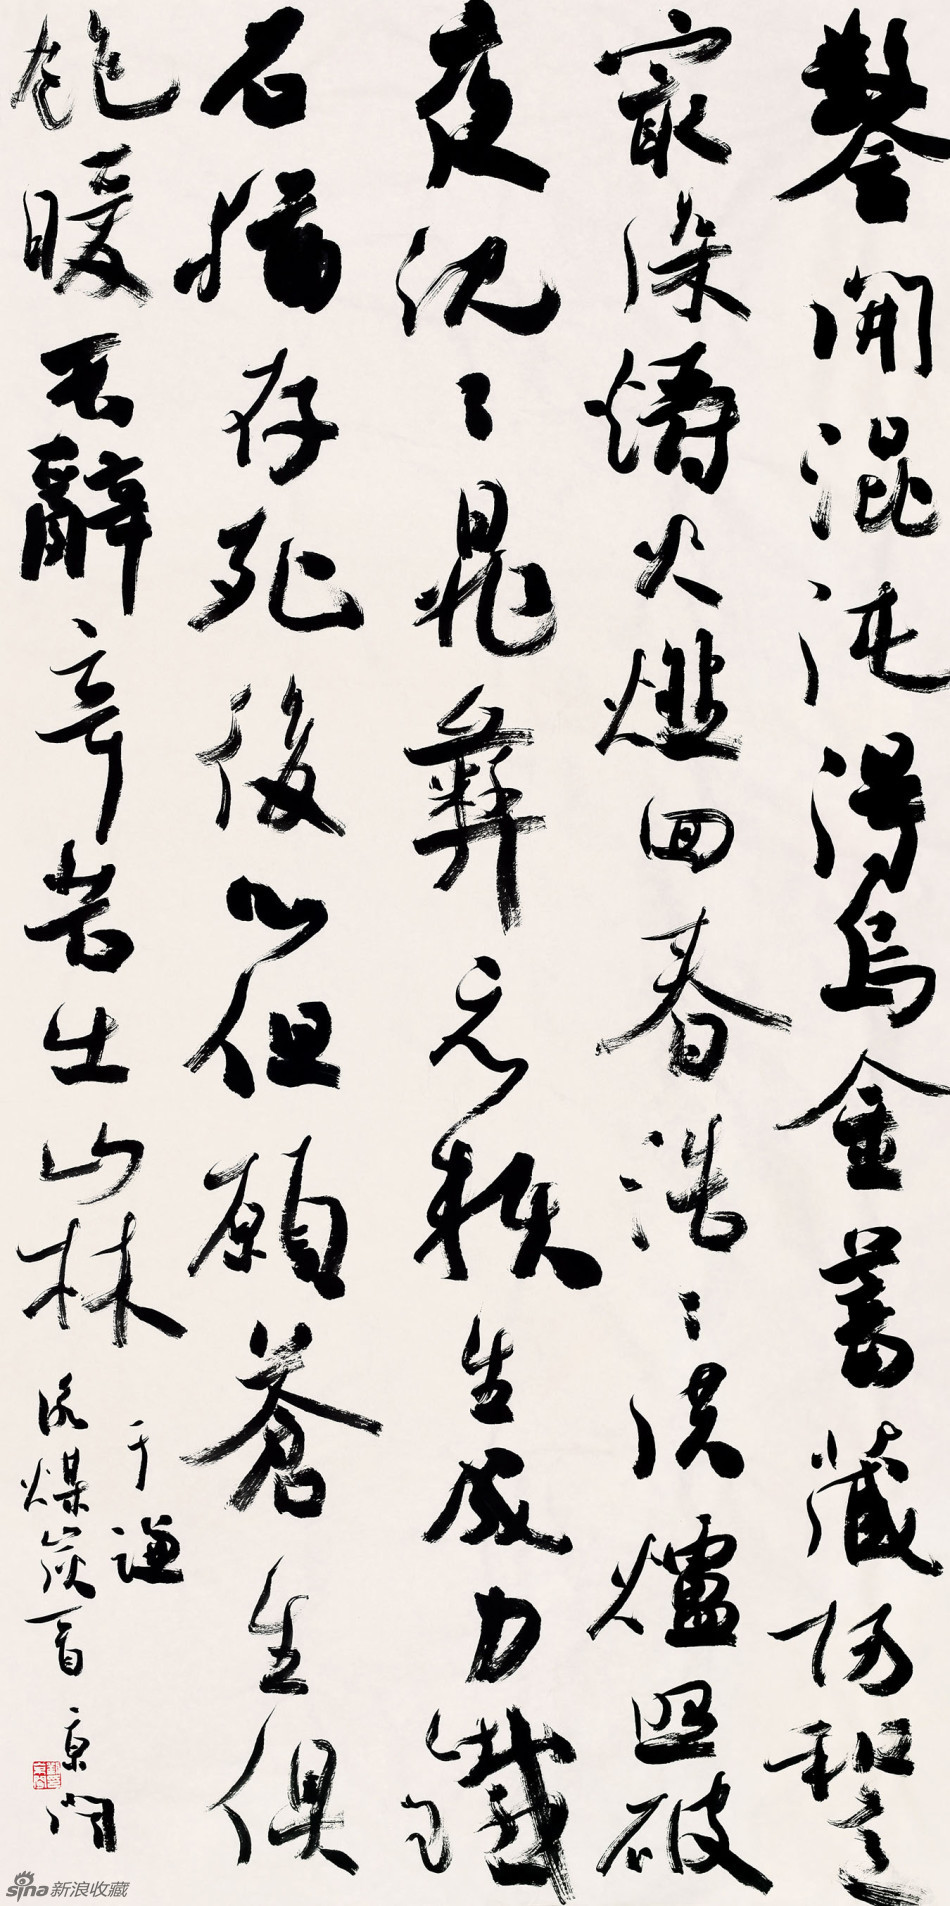 鑿開混沌得烏金蓄藏陽和意
最深爝火燃回春浩〻洪爐照破
夜沈〻鼎彝元賴生成力鐵
石猶存死後心但願蒼生俱
飽暖不辭辛苦出山林
于謙
詠煤炭一首 京聞
sina新浪收藏